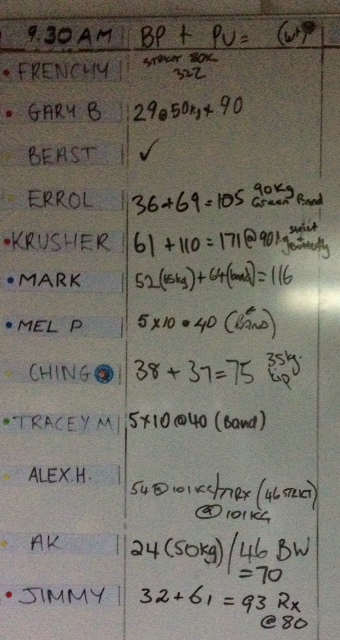 9.30 AM BP + PU = (wt)
FRENCHY STRICT 80K
322
GARY B 29@50kg + 90
BEAST ✓
ERROL 36+69=105 90kg Green Band
KRUSHER 61 + 110 = 171@90kg strict + butterfly
MARK 52(65kg)+64(band)=116
MEL P 5x10 @ 40 (BAND)
CHING 38 + 37=75 35kg
TRACEY M 5x10@40 (Band)
ALEX.H.
54@101KG/77Rx (46 STRICT)
@101KG
AK 24(50kg)/46 BW
=70
JIMMY 32+61 = 93 Rx
@80